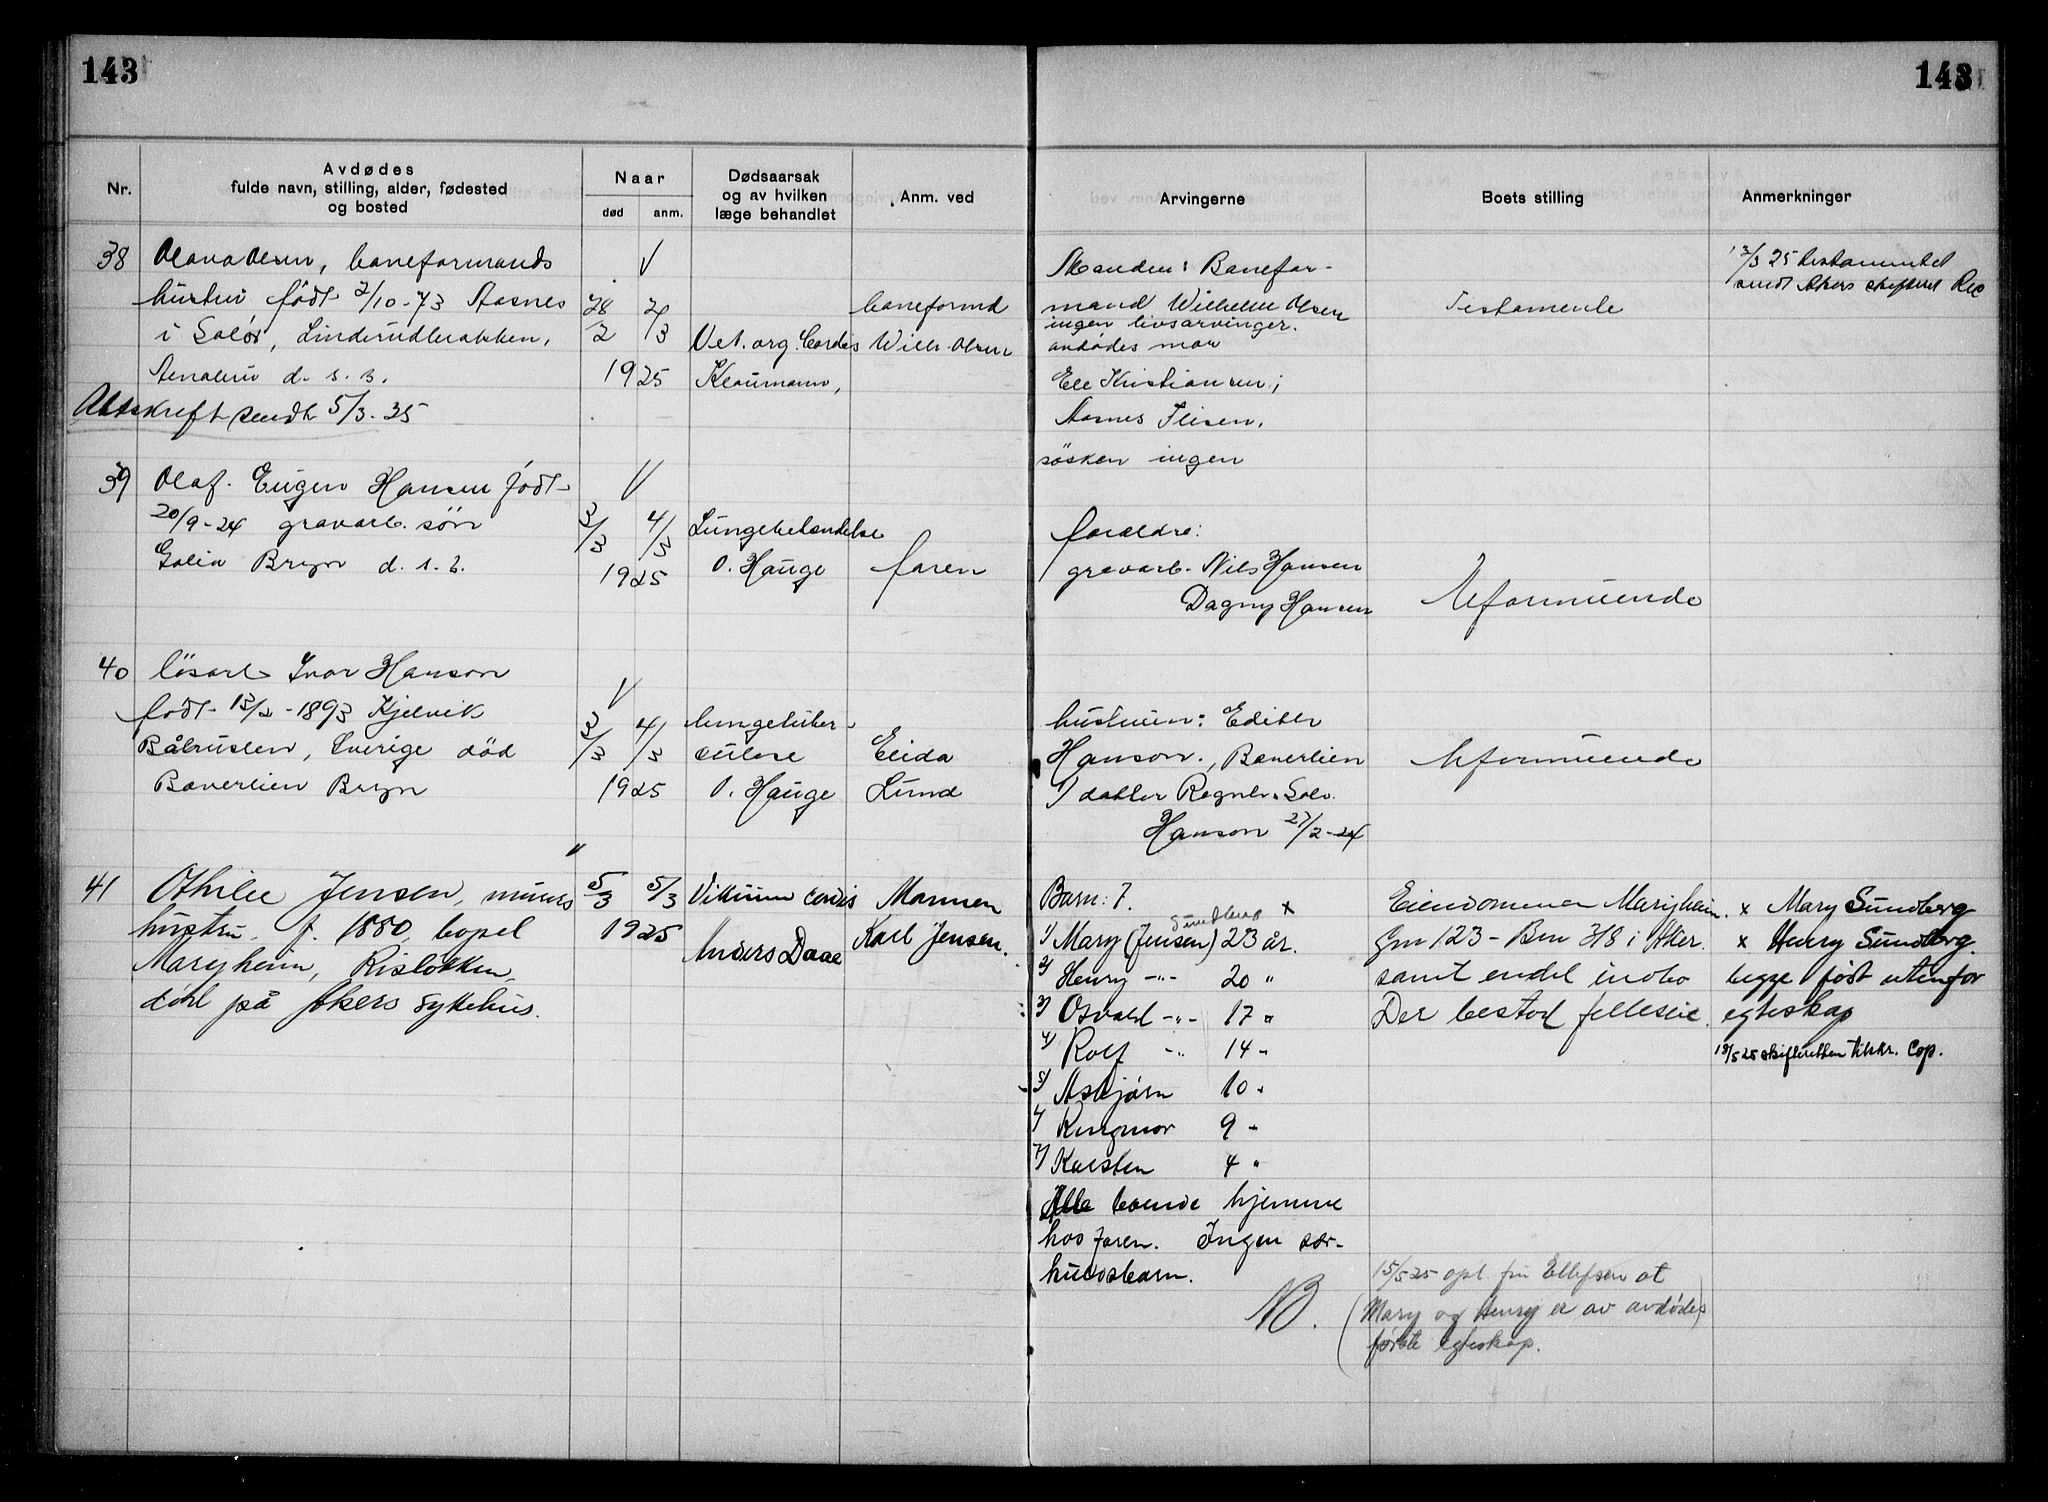 143
143
Nr.
Avdødes
fulde navn, stilling, alder, fødested
og bosted
Naar
død
anm.
Dødsaarsak
og av hvilken
læge behandlet
Anm. ved
Arvingerne
Boets stilling
Anmerkninger
38
Olava Olsen, baneformands
hustru født 2/10-73 Aasnes
i Solør, Linderudbakken,
d. s. s.
Avskrift sendt 5/3. 25
28/2
3/3
1925
Vet. org. Cordis
Klaumann,
baneformd
Wilh. Olsen
Manden: Banefor-
mand Wilhelm Olsen
ingen livsarvinger.
avdødes mor
Eli Kristiansen;
Aasnes Flisen,
søsken ingen
Testamente
13/3 25 testamentet
sendt Akers skifteret Rec
39
Olaf Eugen Hansen født
20/9-24 gravarb. søn
Bryn d. s. s.
3/3
4/3
1925
Lungebetændelse
O. Hauge
faren
foreldre:
gravarb. Nils Hansen
Dagny Hansen
Uformuende
40
løsarb Ivar Hanson
født 13/2-1893 Kjelvik
Båhuslen, Sverige død
Bæverlien Bryn
3/3
4/3
1925
lungetuber-
culose
O. Hauge
Elida
Lund
hustruen: Edith
Hanson., Bæverlien
1 datter Ragnh. Solv.
Hanson 27/2-24
Uformuende
41
Othilie Jensen, murers
hustru. f. 1880, bopel
Maryheim, Risløkken
død på Akers sykehus.
5/3
5/3
1925
Vitium cordis
Anders Daae
Mannen
Karl Jensen.
Barn: 7.
Sundberg x
1) Mary (Jensen) 23 år.
2) Henry -"- 20 "
3) Osvald -"- 17 "
4) Rolf -"- 14 "
5) Asbjørn 10 "
Ringmor 9 "
7) Karsten 4 "
Alle boende hjemme
hos faren. Ingen sær-
kuldsbarn.
NB.
Eiendommen Maryheim.
Gnr 123 - Bnr 318 i Aker.
samt endel indbo
Der bestod felleseie.
x Mary Sundberg
x Henry Sundberg.
begge født utenfor
egteskap
18/5 25 skifteretten tilskr. Cop.
15/5 25 opl. fru Ellefsen at
(Mary og Henry er av avdødes)
første egteskap.